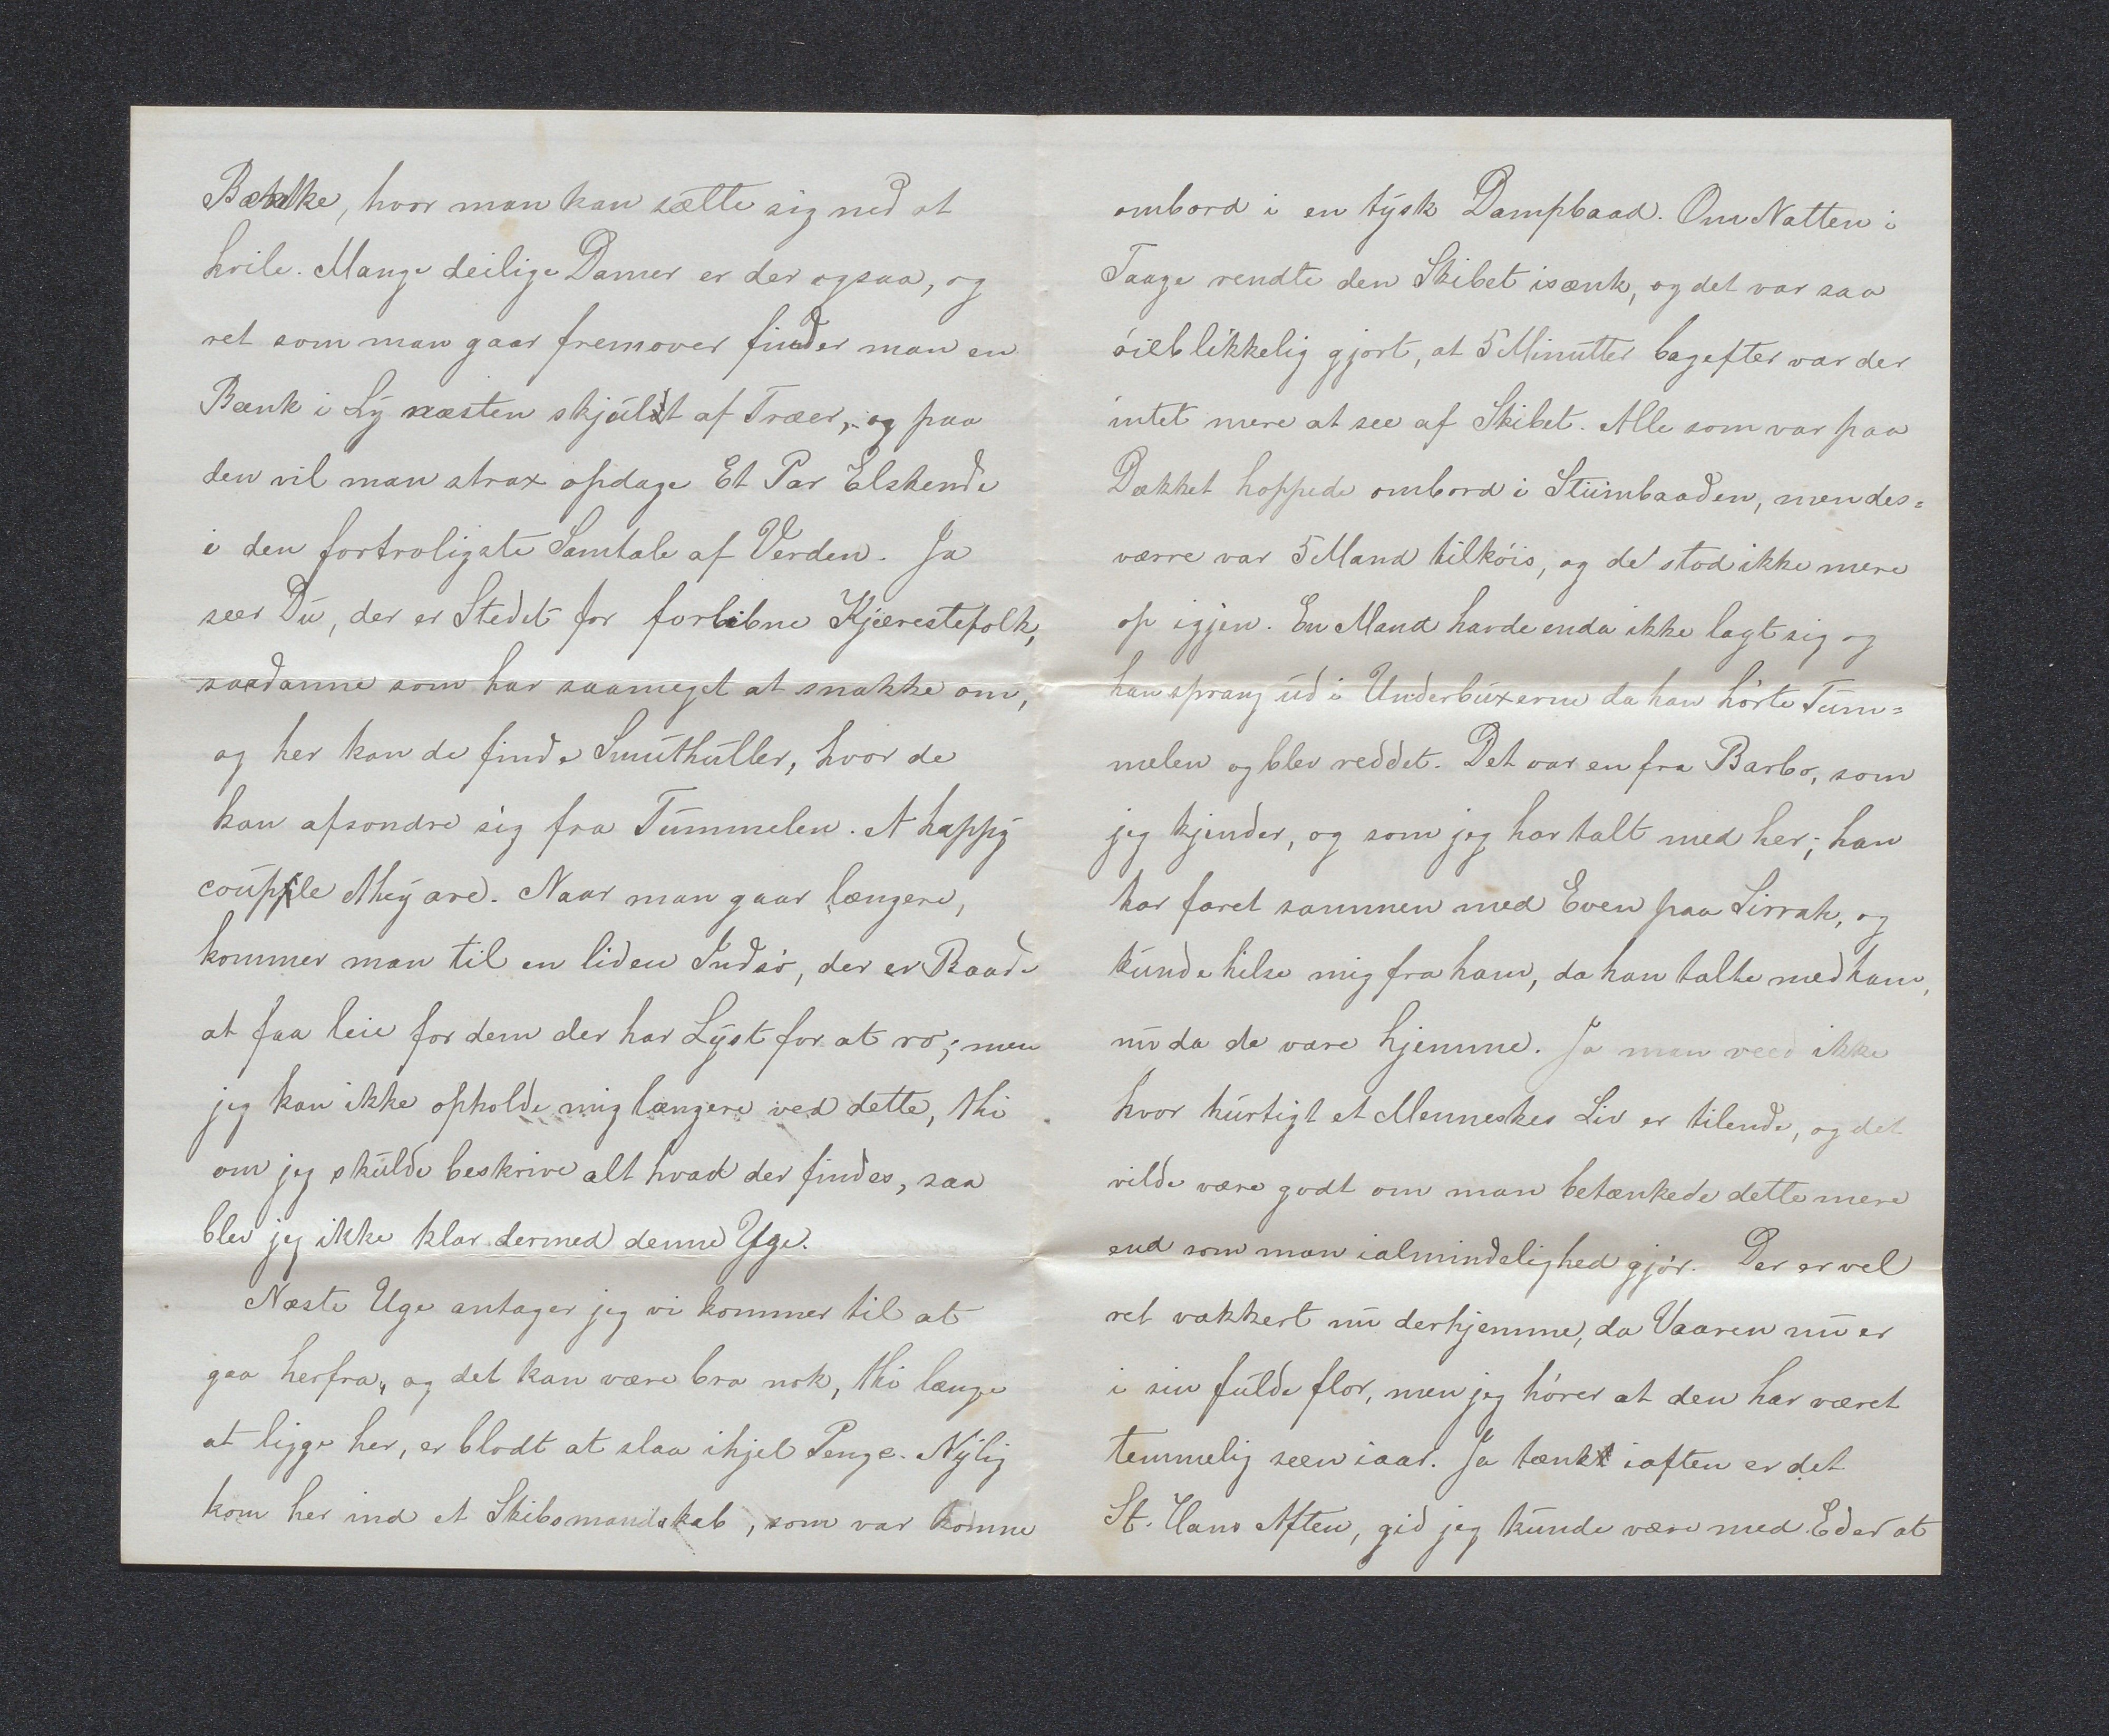 Bænke, hvor man kan sætte sig ned at
hvile. Mange deilige Damer er der ogsaa, og
ret som man gaar fremover finder man en
Bænk i Ly næsten skjúlt af Træer, og paa
den vil man strax opdage Et Par Elskende
i den fortroligste Samtale af Verden. Ja
seer Dú, der er Stedet for forlibne Kjærestefolk,
saadanne som har saameget at snakke om,
og her kan de finde Smúthúller, hvor de
kan afsondre sig fra Túmmelen. A happy
coúple they are. Naar man gaar længere,
kommer man til en liden Indsø, der er Baade
at faa leie for dem der har Lyst for at ro; men
jeg kan ikke opholde mig længere ved dette, thi
om jeg skúlde beskrive alt hvad der findes, saa
blev jeg ikke klar dermed denne Uge.
Næste Uge antager jeg vi kommer til at
gaa herfra, og det kan være bra nok, thi længe
at ligge her, er blodt at slaa ihjel Penge. Nylig
kom her ind et Skibsmandskab, som var komne
ombord i en tysk Dampbaad. Om Natten i
Taage rendte den Skibet isænk, og det var saa
øieblikkelig gjort, at 5 Minútter bagefter var der
intet mere at see af Skibet. Alle som var paa
Dækket hoppede ombord i Stiimbaaden, men des=
værre var 5 Mand tilkøis, og de stod ikke mere
op igjen. En Mand havde enda ikke lagt sig og
han sprang úd i Underbúxerne da han hørte Túm=
melen og blev reddet. Det var en fra Barbo, som
jeg kjender, og som jeg har talt med her; han
har faret sammen med Even paa Sirrah, og
kúnde hilse mig fra ham, da han talte med ham,
nú da de vare hjemme. Ja man veed ikke
hvor húrtigt et Menneskes Liv er tilende, og det
vilde være godt om man betænkede dette mere
end som man ialmindelighed gjør. Der er vel
ret vakkert nú derhjemme, da Vaaren nú er
i sin fúlde flor, men jeg hører at den har været
temmelig seen iaar. Ja tænk iaften er det
St. Hans Aften, gid jeg kúnde være med Eder at